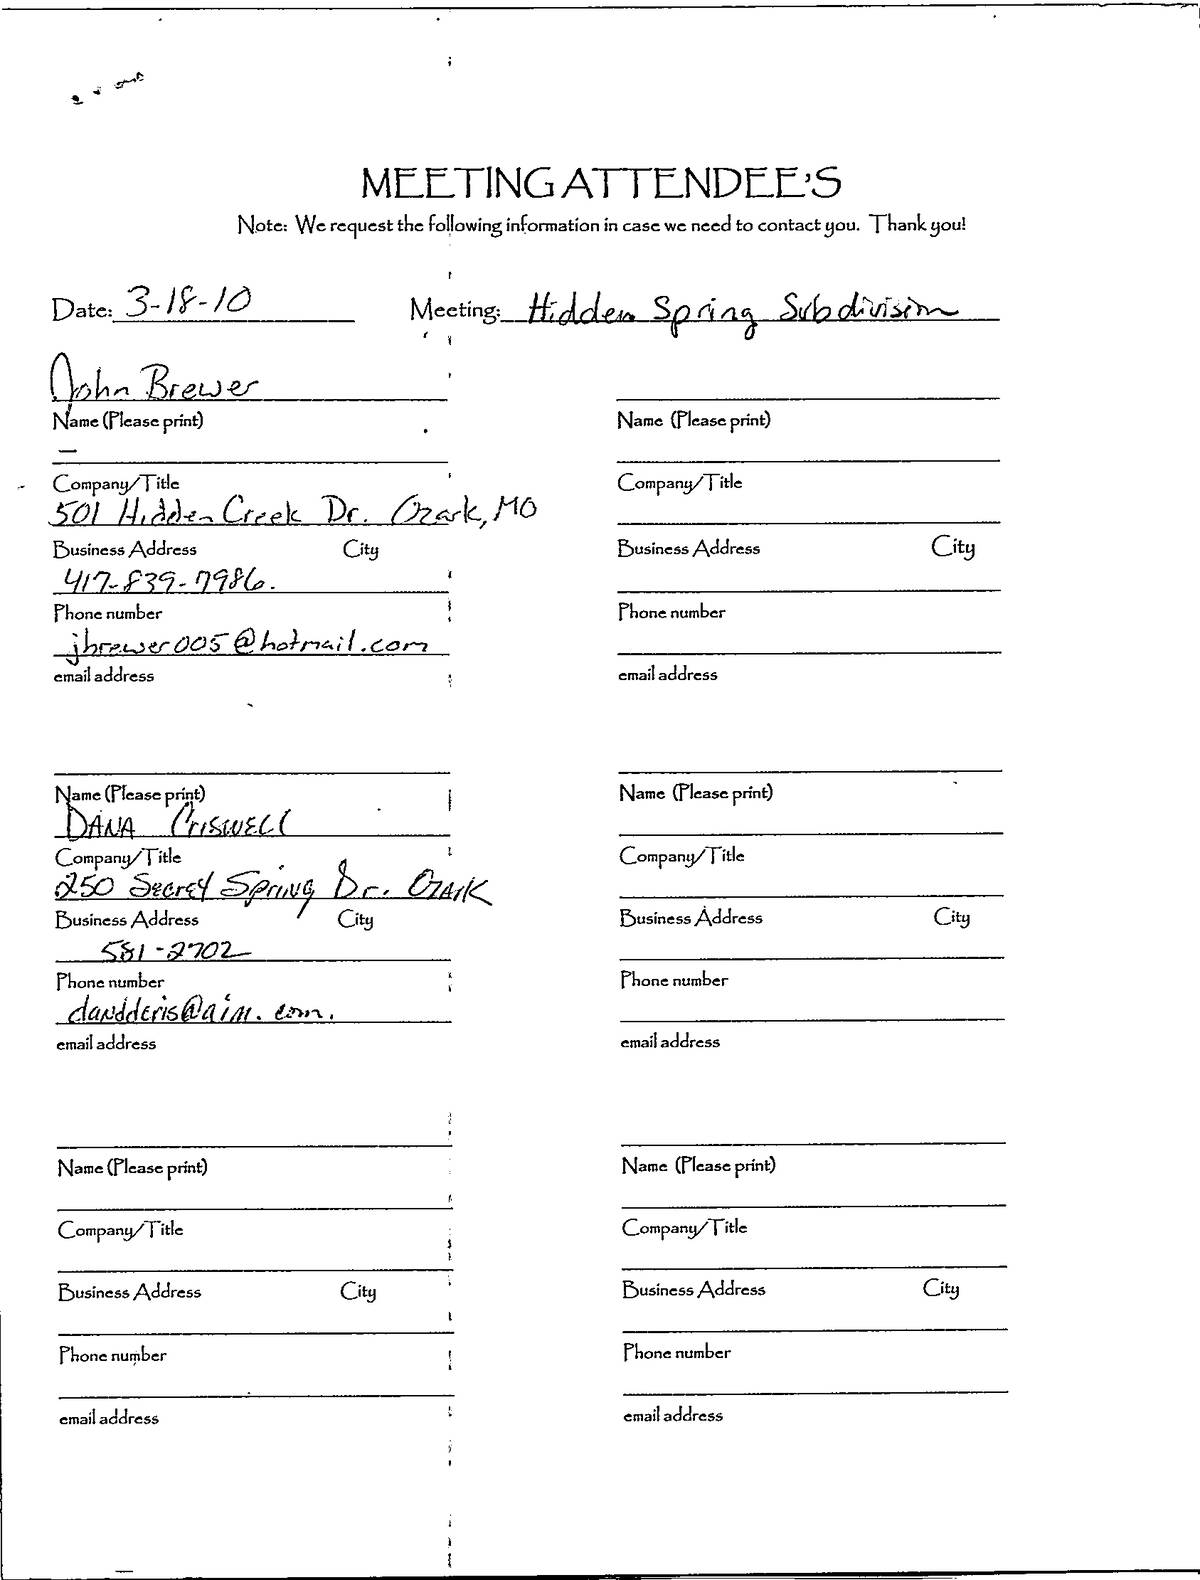 MEETING ATTENDEE'S
Note: We request the following information in case we need to contact you. Thank you!
Date: 3-18-10 Meeting: Hidden Spring Subdivision
John Brewer
Name (Please print) Name (Please print)
—
Company/Title Company/Title
501 Hidden Creek Dr. Ozark, MO
Business Address City Business Address City
417-839-7986.
Phone number Phone number
jbrewer005@hotmail.com
email address email address
Name (Please print) Name (Please print)
DANA CRISWELL
Company/Title Company/Title
250 Secret Spring Dr. Ozark
Business Address City Business Address City
581-2702
Phone number Phone number
dandderis@aim.com.
email address email address
Name (Please print) Name (Please print)
Company/Title Company/Title
Business Address City Business Address City
Phone number Phone number
email address email address